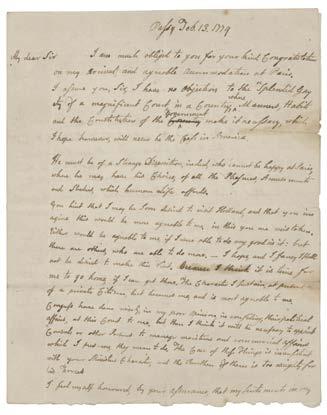 Passy Feb. 13. 1779
My dear Sir
I am much obliged to you for your kind Congratulation
on my Arrival and agreable Accommodation at Paris.
I assure you, Sir, I have no objection to the Splendid Gay
of a magnificent Court, in a Country where Manners, Habits
and the Constitution of the Government make it necessary, which
I hope however, will never be the Case in America.
He must be of a strange Disposition, indeed, who cannot be happy at Paris,
where he may have his Choice, of all the Pleasures, Amusements
and Studies, which human Life affords.
You hint that I may be soon desired to visit Holland, and that you
agree this would be more agreable to me, in this you are mistaken.
Either would be agreable to me if I were able to do any good in it: but
there are others, who are able to do more. — I hope and I fancy I shall
not be desired to make this Visit, Because I think it is time for
me to go home, if I can get there. The Character I sustain, at present
of a private Citizen, best becomes me, and is most agreable to me.
Congress have done wisely, in my poor opinion in confiding their political
affairs, at this Court to one, but then I think it will be necessary to appoint
Consuls or other Persons to manage maritime and commercial affairs
which I presume they mean to do. The Care of these Things is inconsistent
with your Ministers Character, and the Burthen of them is too weighty for
his
I feel myself honoured, by your assurance, that my sentiments in my